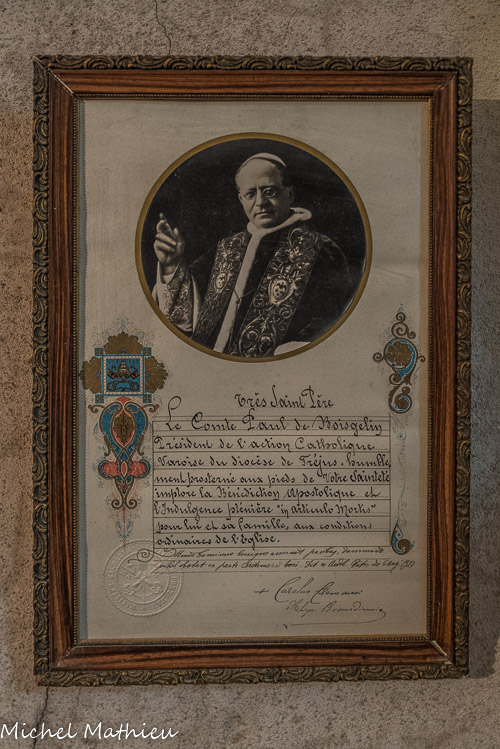 Très Saint Père
Le Comte Paul de Boisgelin
Président de l'action Catholique
Varoise du diocèse de Fréjus, humble-
ment prosterné aux pieds de Votre Sainteté
implore la Bénédiction Apostolique et
l'Indulgence plénière "in Articulo Mortis"
pour lui et sa famille, aux conditions
ordinaires de l'Eglise.
Michel Mathieu